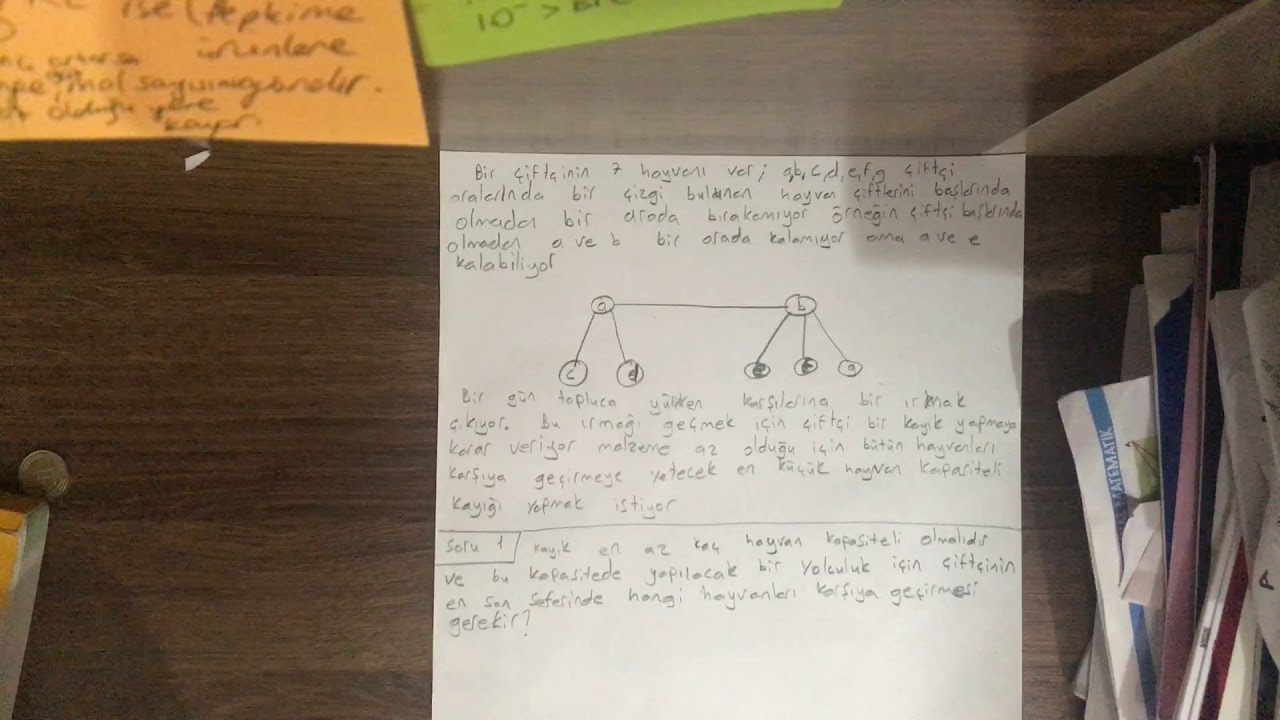 ise (tepkime
ürünlere
artarsa
mol sayısının
olduğu yere
kayar.
10⁻ >
Bir çiftçinin 7 hayvanı var; a,b,c,d,e,f,g çiftçi
aralarında bir çizgi bulunan hayvan çiftlerini başlarında
olmadan bir arada bırakamıyor örneğin çiftçi başlarında
olmadan a ve b bir arada kalamıyor ama a ve e
kalabiliyor
a b
c d e f g
Bir gün topluca yürürken karşılarına bir ırmak
çıkıyor. Bu ırmağı geçmek için çiftçi bir kayık yapmaya
karar veriyor malzeme az olduğu için bütün hayvanları
karşıya geçirmeye yetecek en küçük hayvan kapasiteli
kayığı yapmak istiyor
Soru 1 kayık en az kaç hayvan kapasiteli olmalıdır
ve bu kapasitede yapılacak bir yolculuk için çiftçinin
en son seferinde hangi hayvanları karşıya geçirmesi
gerekir?
MATEMATİK